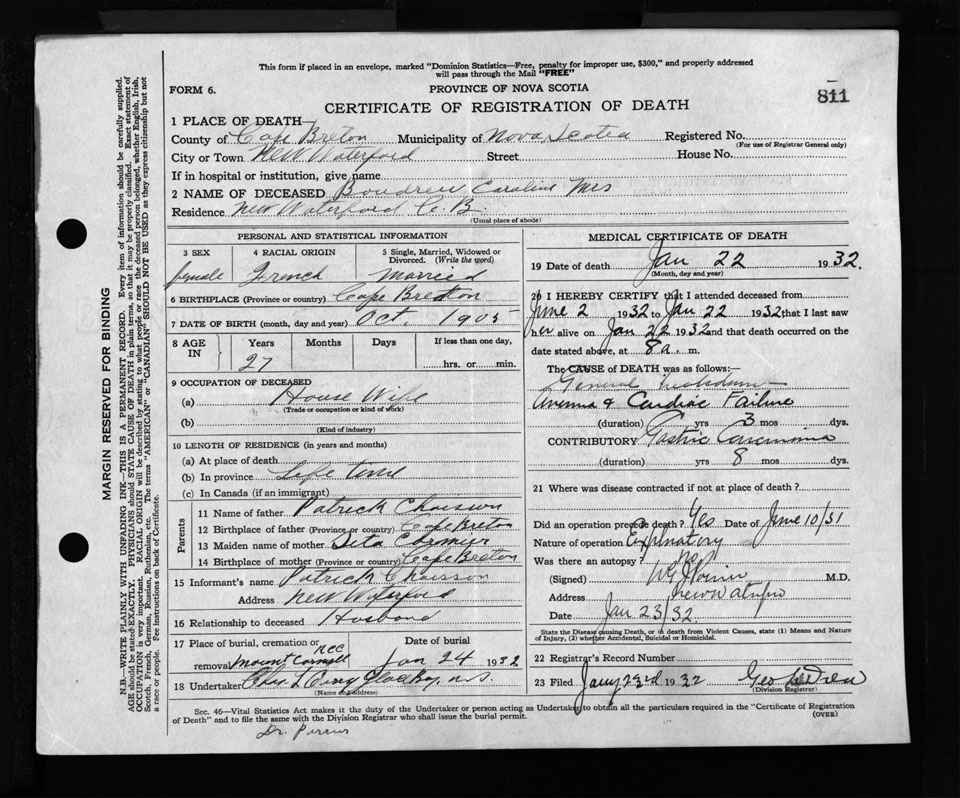 This form if placed in an envelope, marked "Dominion Statistics—Free, penalty for improper use, $300," and properly addressed
will pass through the Mail "FREE"
FORM 6.
PROVINCE OF NOVA SCOTIA
811
CERTIFICATE OF REGISTRATION OF DEATH
1 PLACE OF DEATH—
County of Cape Breton Municipality of Nova Scotia Registered No.
(For use of Registrar General only)
City or Town New Waterford Street House No.
If in hospital or institution, give name
2 NAME OF DECEASED Boudreu Caroline Mrs
Residence New Waterford C. B.
(Usual place of abode)
PERSONAL AND STATISTICAL INFORMATION
3 SEX 4 RACIAL ORIGIN 5 Single, Married, Widowed or
Divorced. (Write the word)
female French Married
6 BIRTHPLACE (Province or country) Cape Breton
7 DATE OF BIRTH (month, day and year) Oct 1905
8 AGE IN Years Months Days If less than one day,
27 hrs. or min.
9 OCCUPATION OF DECEASED
(a) House Wife
(Trade or occupation or kind of work)
(b)
(Kind of industry)
10 LENGTH OF RESIDENCE (in years and months)
(a) At place of death
(b) In province Life time
(c) In Canada (if an immigrant)
Parents
11 Name of father Patrick Chaisson
12 Birthplace of father (Province or country) Cape Breton
13 Maiden name of mother Cormier
14 Birthplace of mother (Province or country) Cape Breton
15 Informant's name Patrick Chaisson
Address New Waterford
16 Relationship to deceased Husband
17 Place of burial, cremation or Date of burial
removal Mount Carmel Jan 24 1932
18 Undertaker Glace Bay, N.S.
(Name and address)
MEDICAL CERTIFICATE OF DEATH
19 Date of death Jan 22 1932.
(Month, day and year)
20 I HEREBY CERTIFY that I attended deceased from
June 2 1932 to Jan 22 1932 that I last saw
her alive on Jan 22 1932 and that death occurred on
date stated above, at 8 a. m.
The CAUSE OF DEATH was as follows:—
General
Anemia & Cardiac Failure
(duration) yrs 3 mos dys.
CONTRIBUTORY Gastric Carcinoma
(duration) yrs 8 mos dys.
21 Where was disease contracted if not at place of death?
Did an operation precede death? Yes Date of June 10/31
Nature of operation
Was there an autopsy? no
(Signed) M.D.
Address
Date Jan 23/32
State the Disease causing Death, or in death from Violent Causes, state (1) Means and Nature
of Injury, (2) whether Accidental, Suicidal or Homicidal.
22 Registrar's Record Number
23 Filed Jany 23rd 1932 Geo
(Division Registrar)
Sec. 46—Vital Statistics Act makes it the duty of the Undertaker or person acting as Undertaker to obtain all the particulars required in the "Certificate of Registration
of Death" and to file the same with the Division Registrar who shall issue the burial permit.
(OVER)
Dr.
MARGIN RESERVED FOR BINDING
N.B.—WRITE PLAINLY WITH UNFADING INK—THIS IS A PERMANENT RECORD. Every item of information should be carefully supplied.
AGE should be stated EXACTLY. PHYSICIANS should state CAUSE OF DEATH in plain terms, so that it may be properly classified. Exact statement of
OCCUPATION is very important. RACIAL ORIGIN will be described by stating to what people or race the deceased person belonged, whether English, Irish,
Scotch, French, German, Russian, Ruthenian, etc. The terms "AMERICAN" or "CANADIAN" SHOULD NOT BE USED as they express citizenship but not
a race or people. See instructions on back of Certificate.